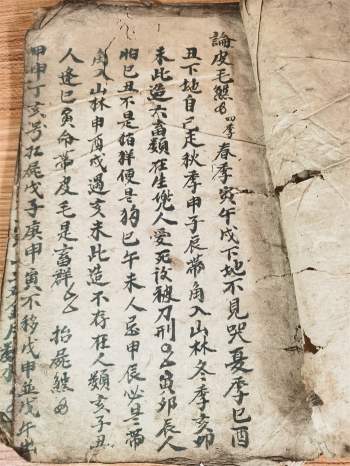 論皮毛煞 四季 春季寅午戌下地不見哭夏季巳酉
丑下地自己走秋季甲子辰帶角入山林冬季亥卯
未此造六畜類在生兇人愛死後被刀刑 寅卯辰人
怕巳丑不是猪羊便是狗巳午未人忌甲辰必是帶
角入山林申酉戌遇亥未此造不存在人類亥子丑
人逢巳寅命帶皮毛是畜群 抬屍煞
甲申丁亥号抬屍戊子庚申寅不移戊申並戊午